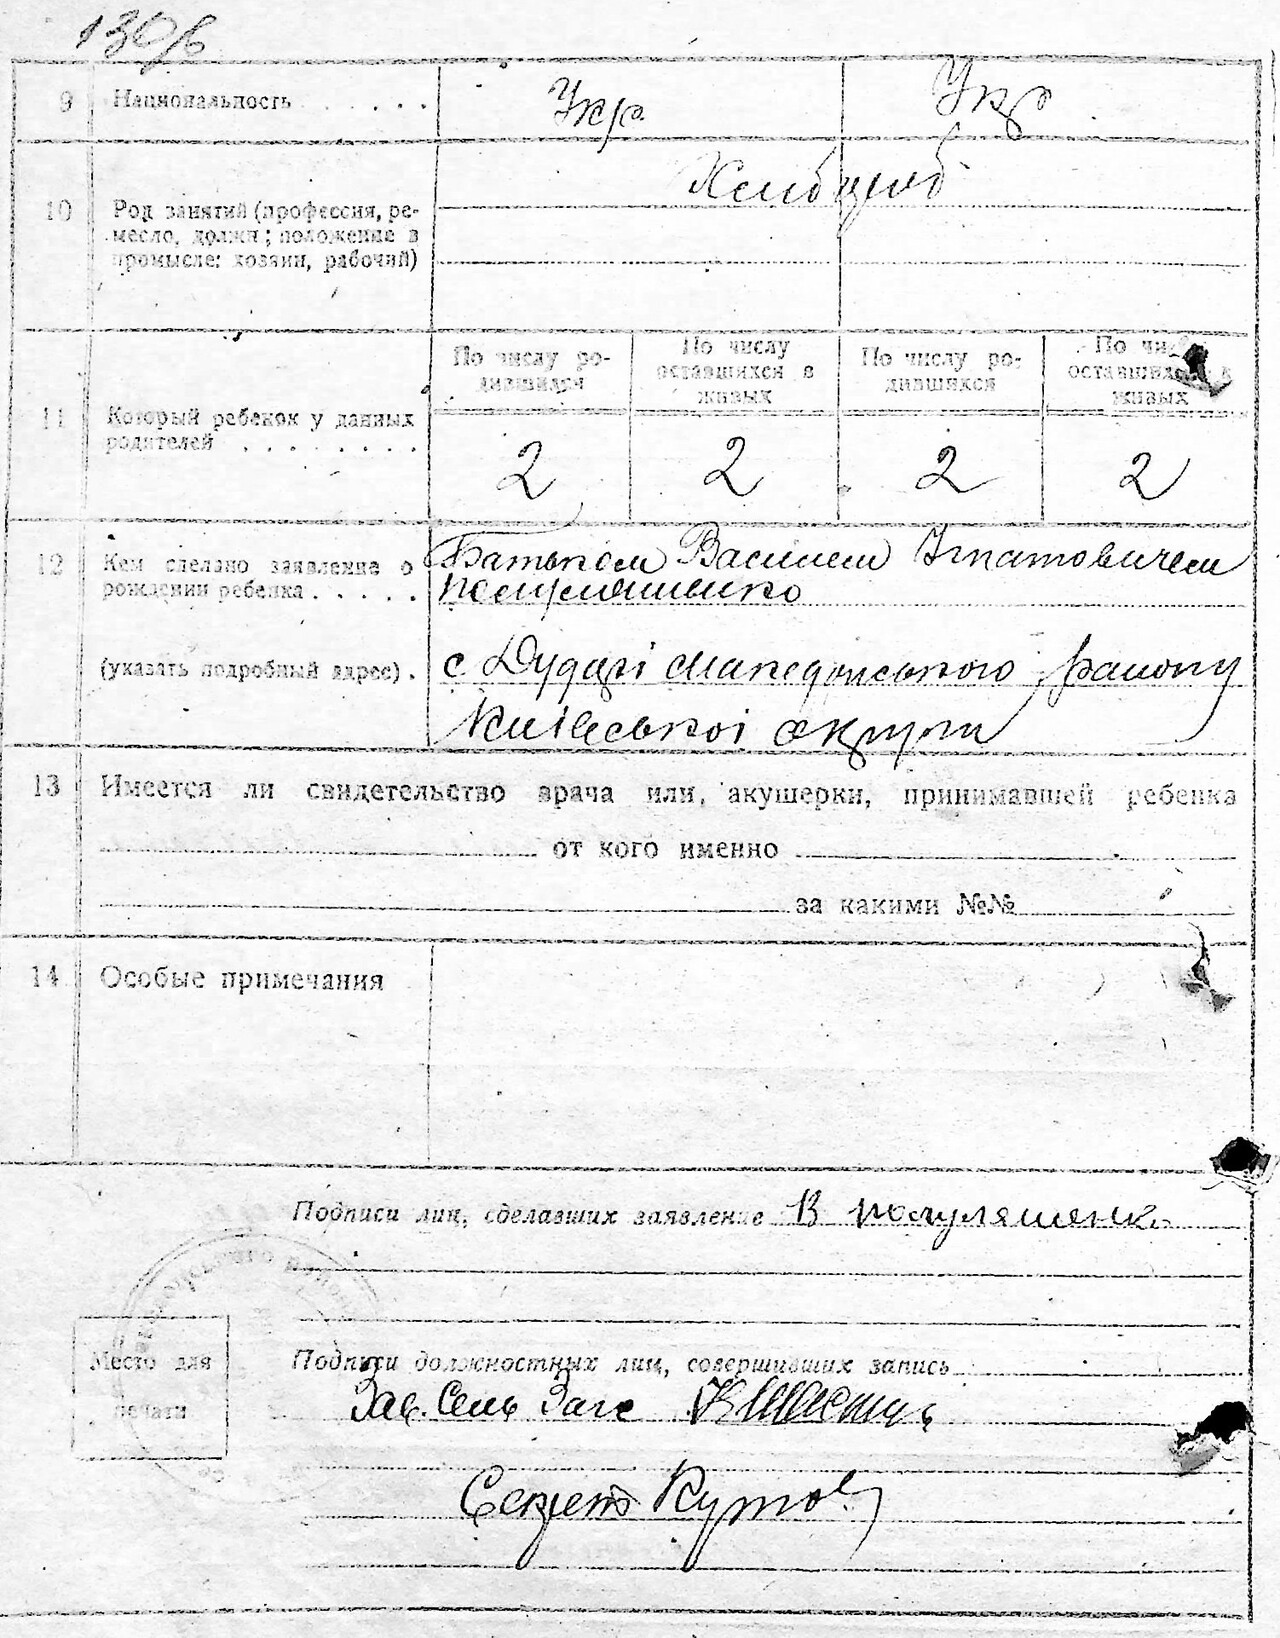 130б
9 Национальность . . . . . . Укр. Укр
Хлибороб
10 Род занятий (профессия, ре-
месло, должн; положение в
промысле: хозяин, рабочий)
По числу ро-
дившихся
По числу
оставшихся в
живых
По числу ро-
дившихся
По числу
оставшихся в
живых
11 Который ребенок у данных
родителей . . . . . . . .
2 2 2 2
12 Кем сделано заявление о
рождении ребенка . . . . .
Батьком Василем Ігнатовичем
(указать подробный адрес) .
с Дударі Македонського району
Київської округи
13 Имеется ли свидетельство врача или, акушерки, принимавшей ребенка
от кого именно
за какими №№
14 Особые примечания
Подписи лиц, сделавших заявление В Полуляшенко
Место для
печати
Подписи должностных лиц, совершивших запись
Зав. Сель Загс
Секрет